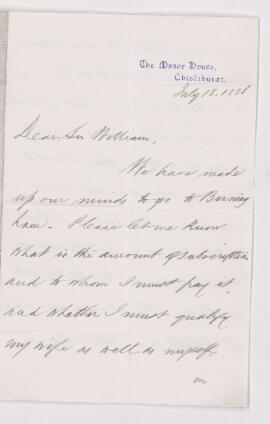 The Manor House,
Chislehurst.
July 18. 1886
Dear Sir William,
We have made
up our minds to go to Birming
ham - Please let me know
what is the amount of subscription
and to whom I must pay it,
and whether I must qualify
my wife as well as myself.
in